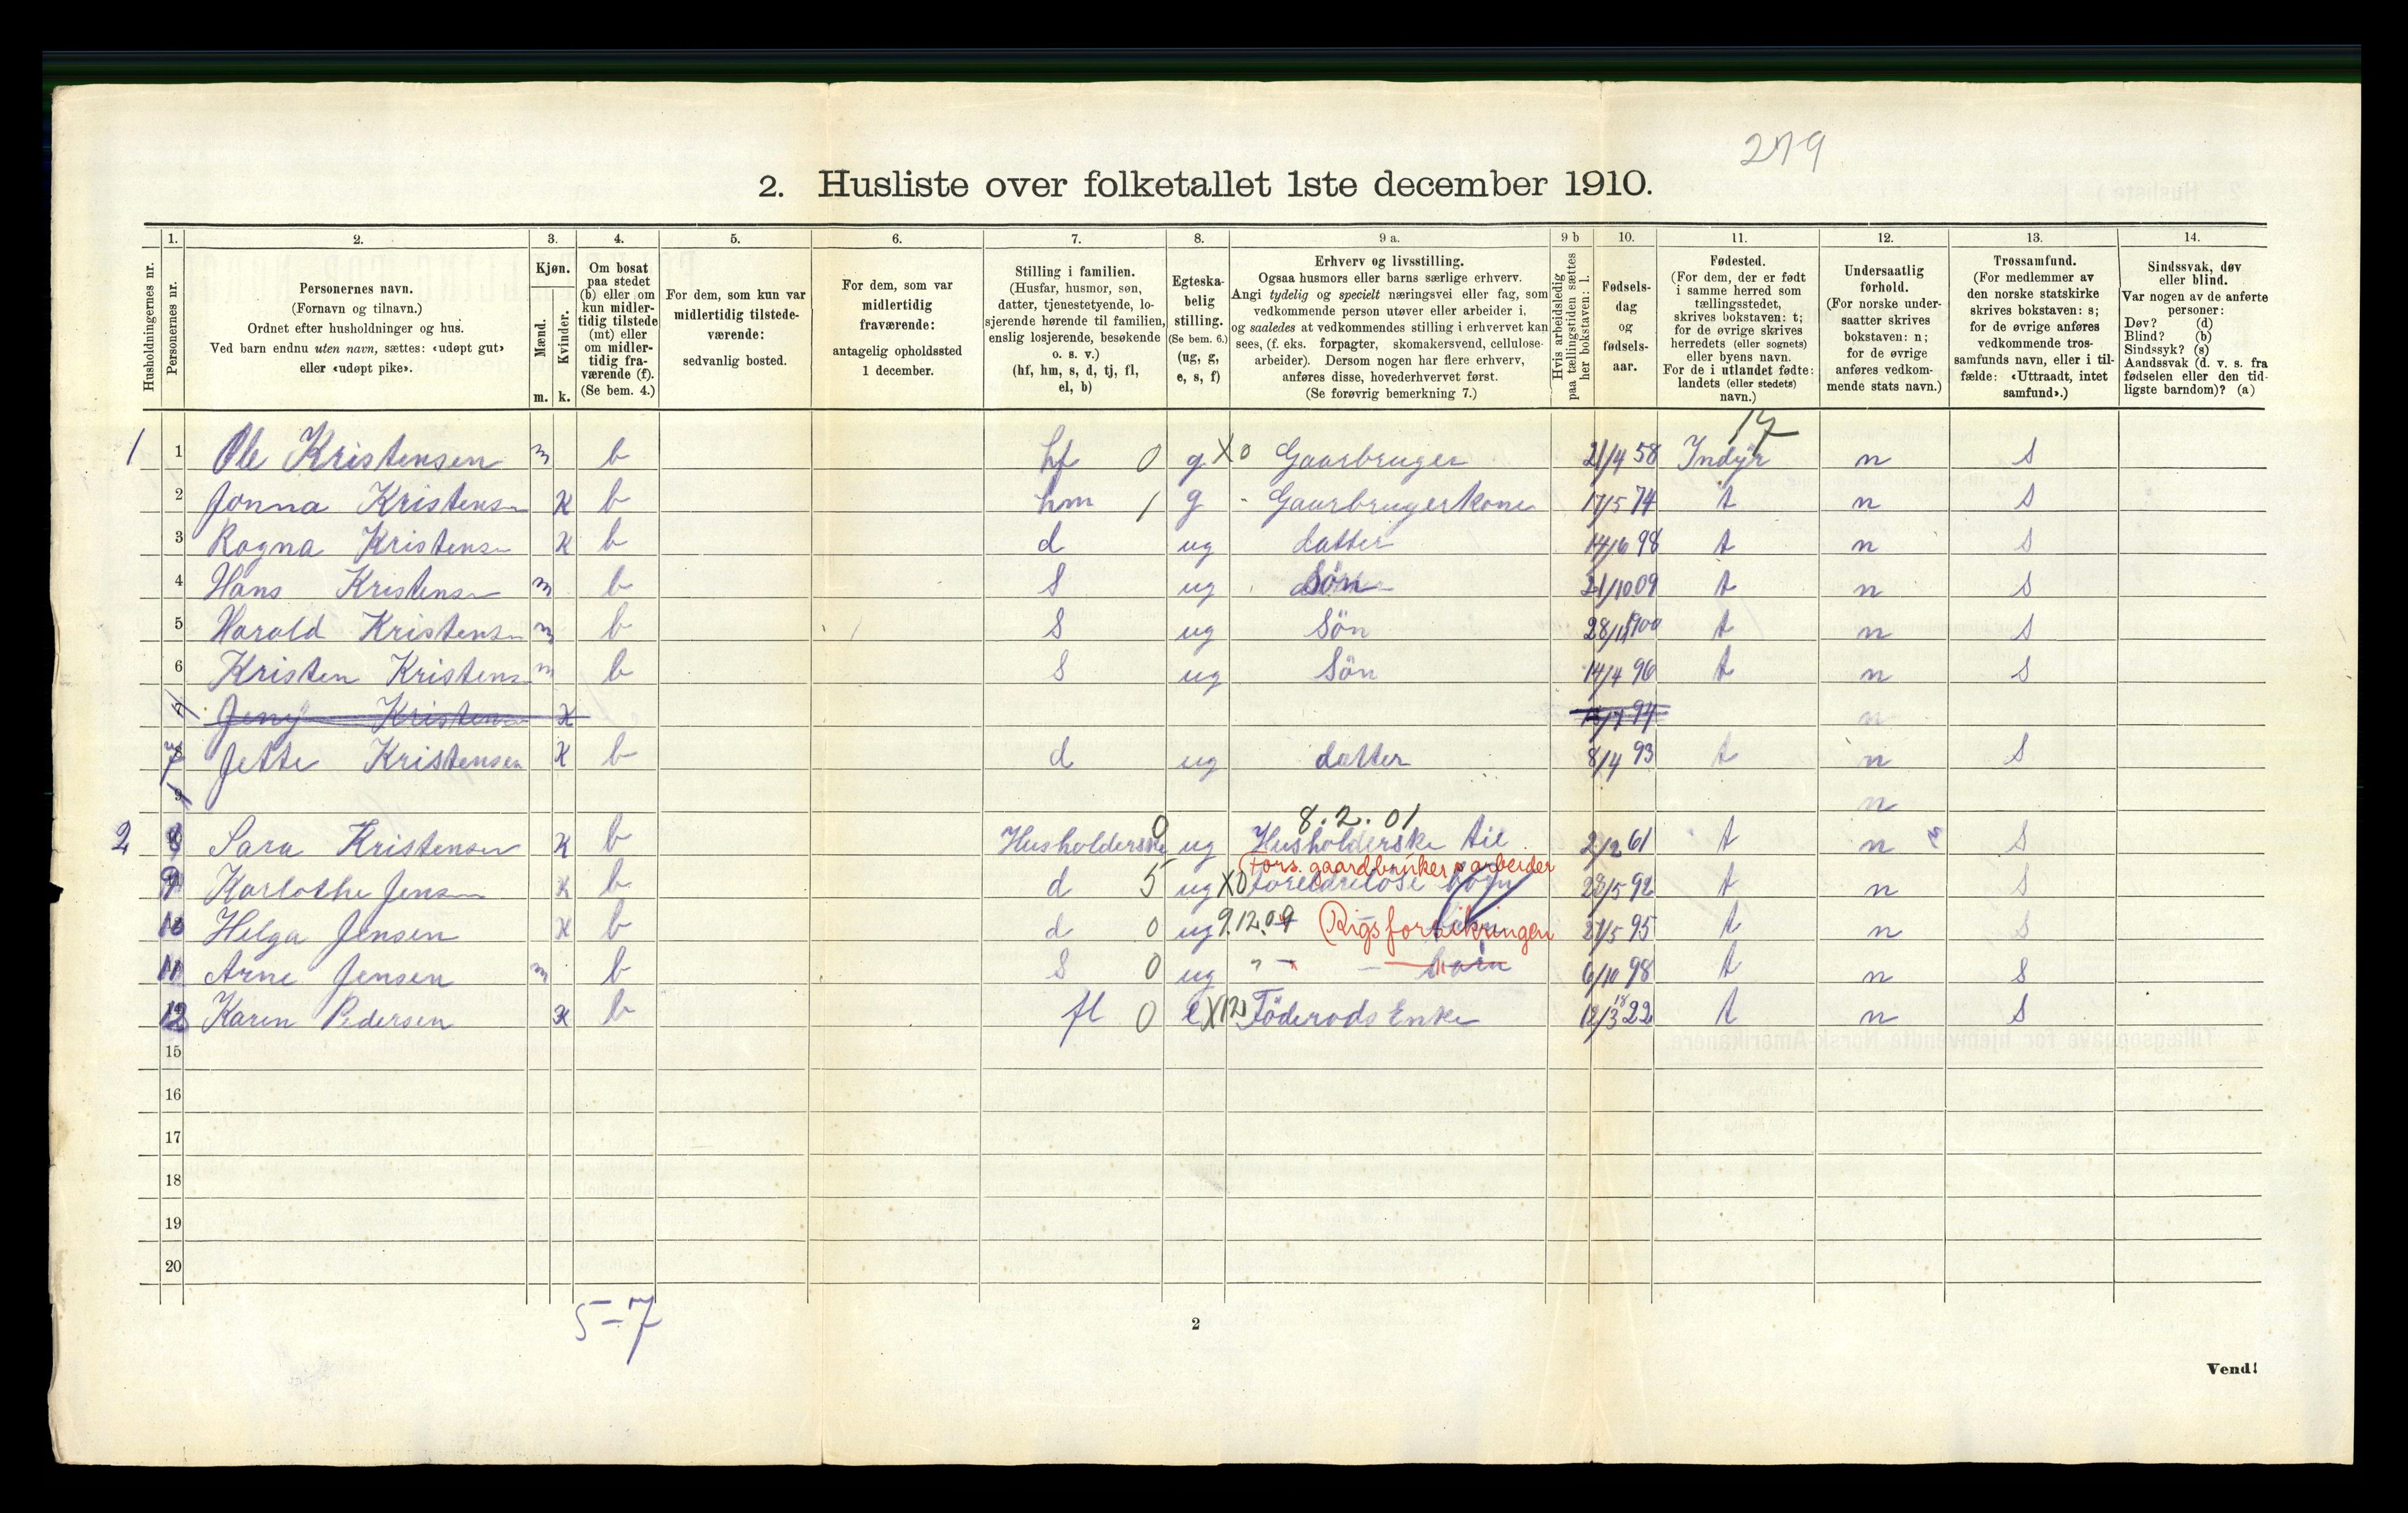 279
2. Husliste over folketallet 1ste december 1910.
1. 2. 3. 4. 5. 6. 7. 8. 9 a. 9 b 10. 11. 12. 13. 14.
Husholdningernes nr.
Personernes nr.
Personernes navn.
(Fornavn og tilnavn.)
Ordnet efter husholdninger og hus.
Ved barn endnu uten navn, sættes: «udøpt gut»
eller «udøpt pike».
Kjøn.
Mænd.
Kvinder.
m. k.
Om bosat
paa stedet
(b) eller om
kun midler-
tidig tilstede
(mt) eller
om midler-
tidig fra-
værende (f).
(Se bem. 4.)
For dem, som kun var
midlertidig tilstede-
værende:
sedvanlig bosted.
For dem, som var
midlertidig
fraværende:
antagelig opholdssted
1 december.
Stilling i familien.
(Husfar, husmor, søn,
datter, tjenestetyende, lo-
sjerende hørende til familien,
enslig losjerende, besøkende
o. s. v.)
(hf, hm, s, d, tj, fl,
el, b)
Egteska-
belig
stilling.
(Se bem. 6.)
(ug, g,
e, s, f)
Erhverv og livsstilling.
Ogsaa husmors eller barns særlige erhverv.
Angi tydelig og specielt næringsvei eller fag, som
vedkommende person utøver eller arbeider i,
og saaledes at vedkommendes stilling i erhvervet kan
sees, (f. eks. forpagter, skomakersvend, cellulose-
arbeider). Dersom nogen har flere erhverv,
anføres disse, hovederhvervet først.
(Se forøvrig bemerkning 7.)
Hvis arbeidsledig
paa tællingstiden sættes
her bokstaven: l.
Fødsels-
dag
og
fødsels-
aar.
Fødested.
(For dem, der er født
i samme herred som
tællingsstedet,
skrives bokstaven: t;
for de øvrige skrives
herredets (eller sognets)
eller byens navn.
For de i utlandet fødte:
landets (eller stedets)
navn.)
Undersaatlig
forhold.
(For norske under-
saatter skrives
bokstaven: n;
for de øvrige
anføres vedkom-
mende stats navn.)
Trossamfund.
(For medlemmer av
den norske statskirke
skrives bokstaven: s;
for de øvrige anføres
vedkommende tros-
samfunds navn, eller i til-
fælde: «Uttraadt, intet
samfund».)
Sindssvak, døv
eller blind.
Var nogen av de anførte
personer:
Døv? (d)
Blind? (b)
Sindssyk? (s)
Aandssvak (d. v. s. fra
fødselen eller den tid-
ligste barndom)? (a)
17
1 1 Ole Kristensen m b hf 0 g X0 Gaarbruger 21/4 58 Indyr n S
2 Jonna Kristensen K b hm 1 g - Gaarbrugerkone 17/5 74 t n S
3 Ragna Kristensen K b d ug datter 14/6 98 t n S
4 Hans Kristensen m b S ug Sön 21/10 09 t n S
5 Harald Kristensen m b S ug Sön 28/11 1900 t n S
6 Kristen Kristens m b S ug Sön 14/4 96 t n S
7 Jenÿ Kristensen K n
7 Jette Kristensen K b d ug datter 8/4 93 t n S
9 n
8.2.01
2 8 Sara Kristensen K b Husholderske 0 ug Husholderske til 2/2 61 t n S
Fors. gaardbruker + arbeider
9 Karlothe Jensen K b d 5 ug X0 foreldrelöse born 23/5 92 t n S
10 Helga Jensen K b d 0 ug 9.12.09 Rigsforsikringen 27/5 95 t n S
11 Arne Jensen m b S 0 ug " - - barn 6/10 98 t n S
12 Karen Pedersen K b fl 0 e X12) Föderods Enke 12/3 1822 t n S
15
16
17
18
19
20
5 - 7
2
Vend!